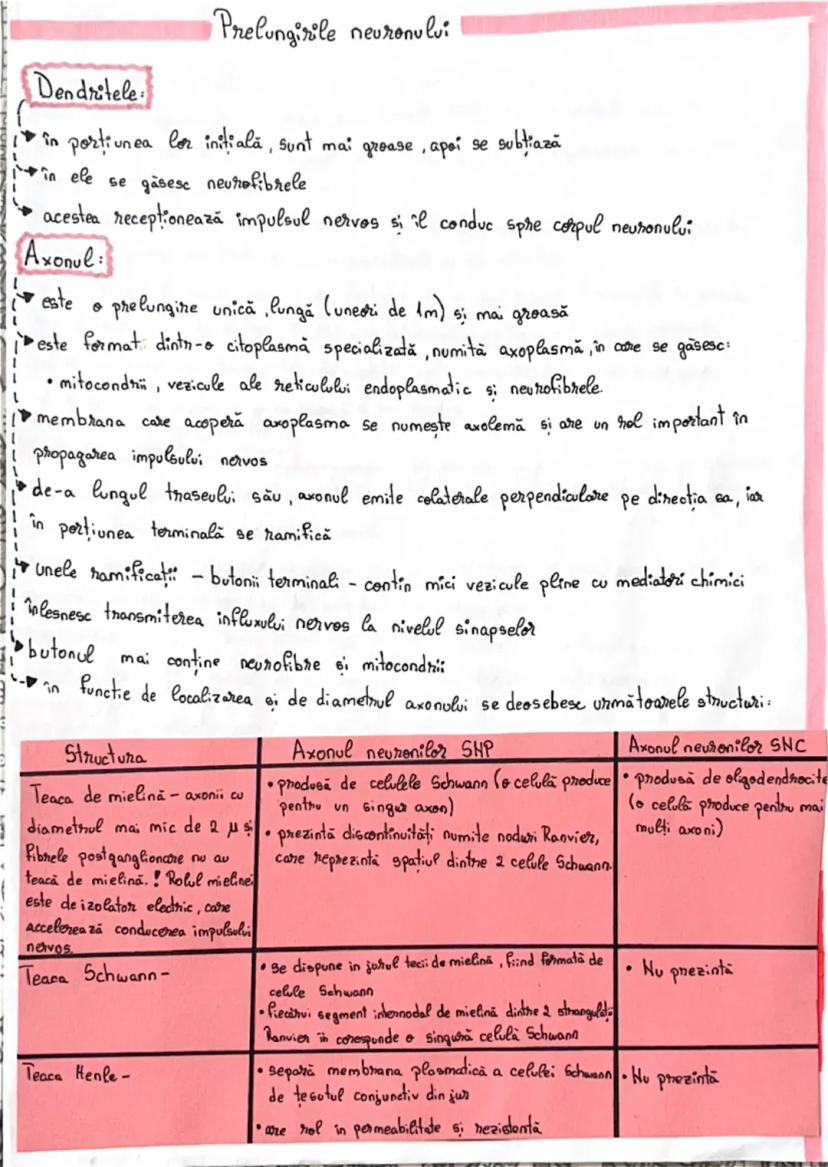 Prelungirile neuronului
Dendritele:
în porțiunea lor inițială, sunt mai groase, apoi se subțiază
în ele se găsesc neurofibrele
acestea recepționează impulsul nervos și îl conduc spre corpul neuronului
Axonul:
este o prelungire unică, lungă (uneori de 1m) și mai groasă
este format dintr-o citoplasmă specializată, numită axoplasmă, în care se găsesc:
• mitocondrii, vezicule ale reticulului endoplasmatic și neurofibrele.
membrana care acoperă axoplasma se numește axolemă și are un rol important în
propagarea impulsului nervos
de-a lungul traseului său, axonul emite colaterale perpendiculare pe direcția sa, iar
în porțiunea terminală se ramifică
unele ramificații - butonii terminali - contin mici vezicule pline cu mediatori chimici
înlesnesc transmiterea influxului nervos la nivelul sinapselor
butonul mai conține neurofibre și mitocondrii
în funcție de localizarea și de diametrul axonului se deosebesc următoarele structuri:
Structura
Teaca de mielină - axonii cu
diametrul mai mic de 2 μ și
fibrele postganglionare nu au
teacă de mielină. ! Rolul mielinei
este de izolator electric, care
accelerează conducerea impulsului
nervos.
Axonul neuronilor SNP
• produsă de celulele Schwann (o celulă produce
pentru un singur axon)
• prezintă discontinuități numite noduri Ranvier,
care reprezintă spațiul dintre 2 celule Schwann.
Axonul neuronilor SNC
• produsă de oligodendrocite
(o celulă produce pentru mai
mulți axoni)
Teaca Schwann -
• se dispune in jurul tecii de mielină, fiind formată de
celule Schwann
• fiecărui segment internodal de mielină dintre 2 strangulații
Ranvier îi corespunde o singură celulă Schwann
• Nu prezintă
Teaca Henle -
• separă membrana plasmatică a celulei Schwann
de țesutul conjunctiv din jur
• are rol in permeabilitate și rezistentă
• Nu prezintă